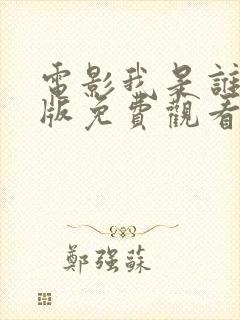 電影我是誰
版免費觀看
鄭強蘇